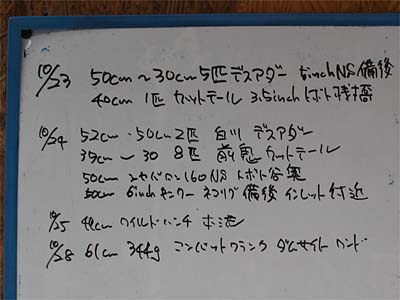 10/23 50cm～30cm 5匹 デスアダー 6inch NS 備後
40cm 1匹 カットテール 3.5inch 残橋
10/24 52cm・50cm 2匹 白川 デスアダー
35cm～30 8匹 前鬼 カットテール
50cm 160 NS
50cm 6inch センコー ネコリグ 備後 インレット 付近
10/25 44cm ワイルドハンチ 本流
10/28 61cm 3449g コンバットクランク ダムサイト ワンド